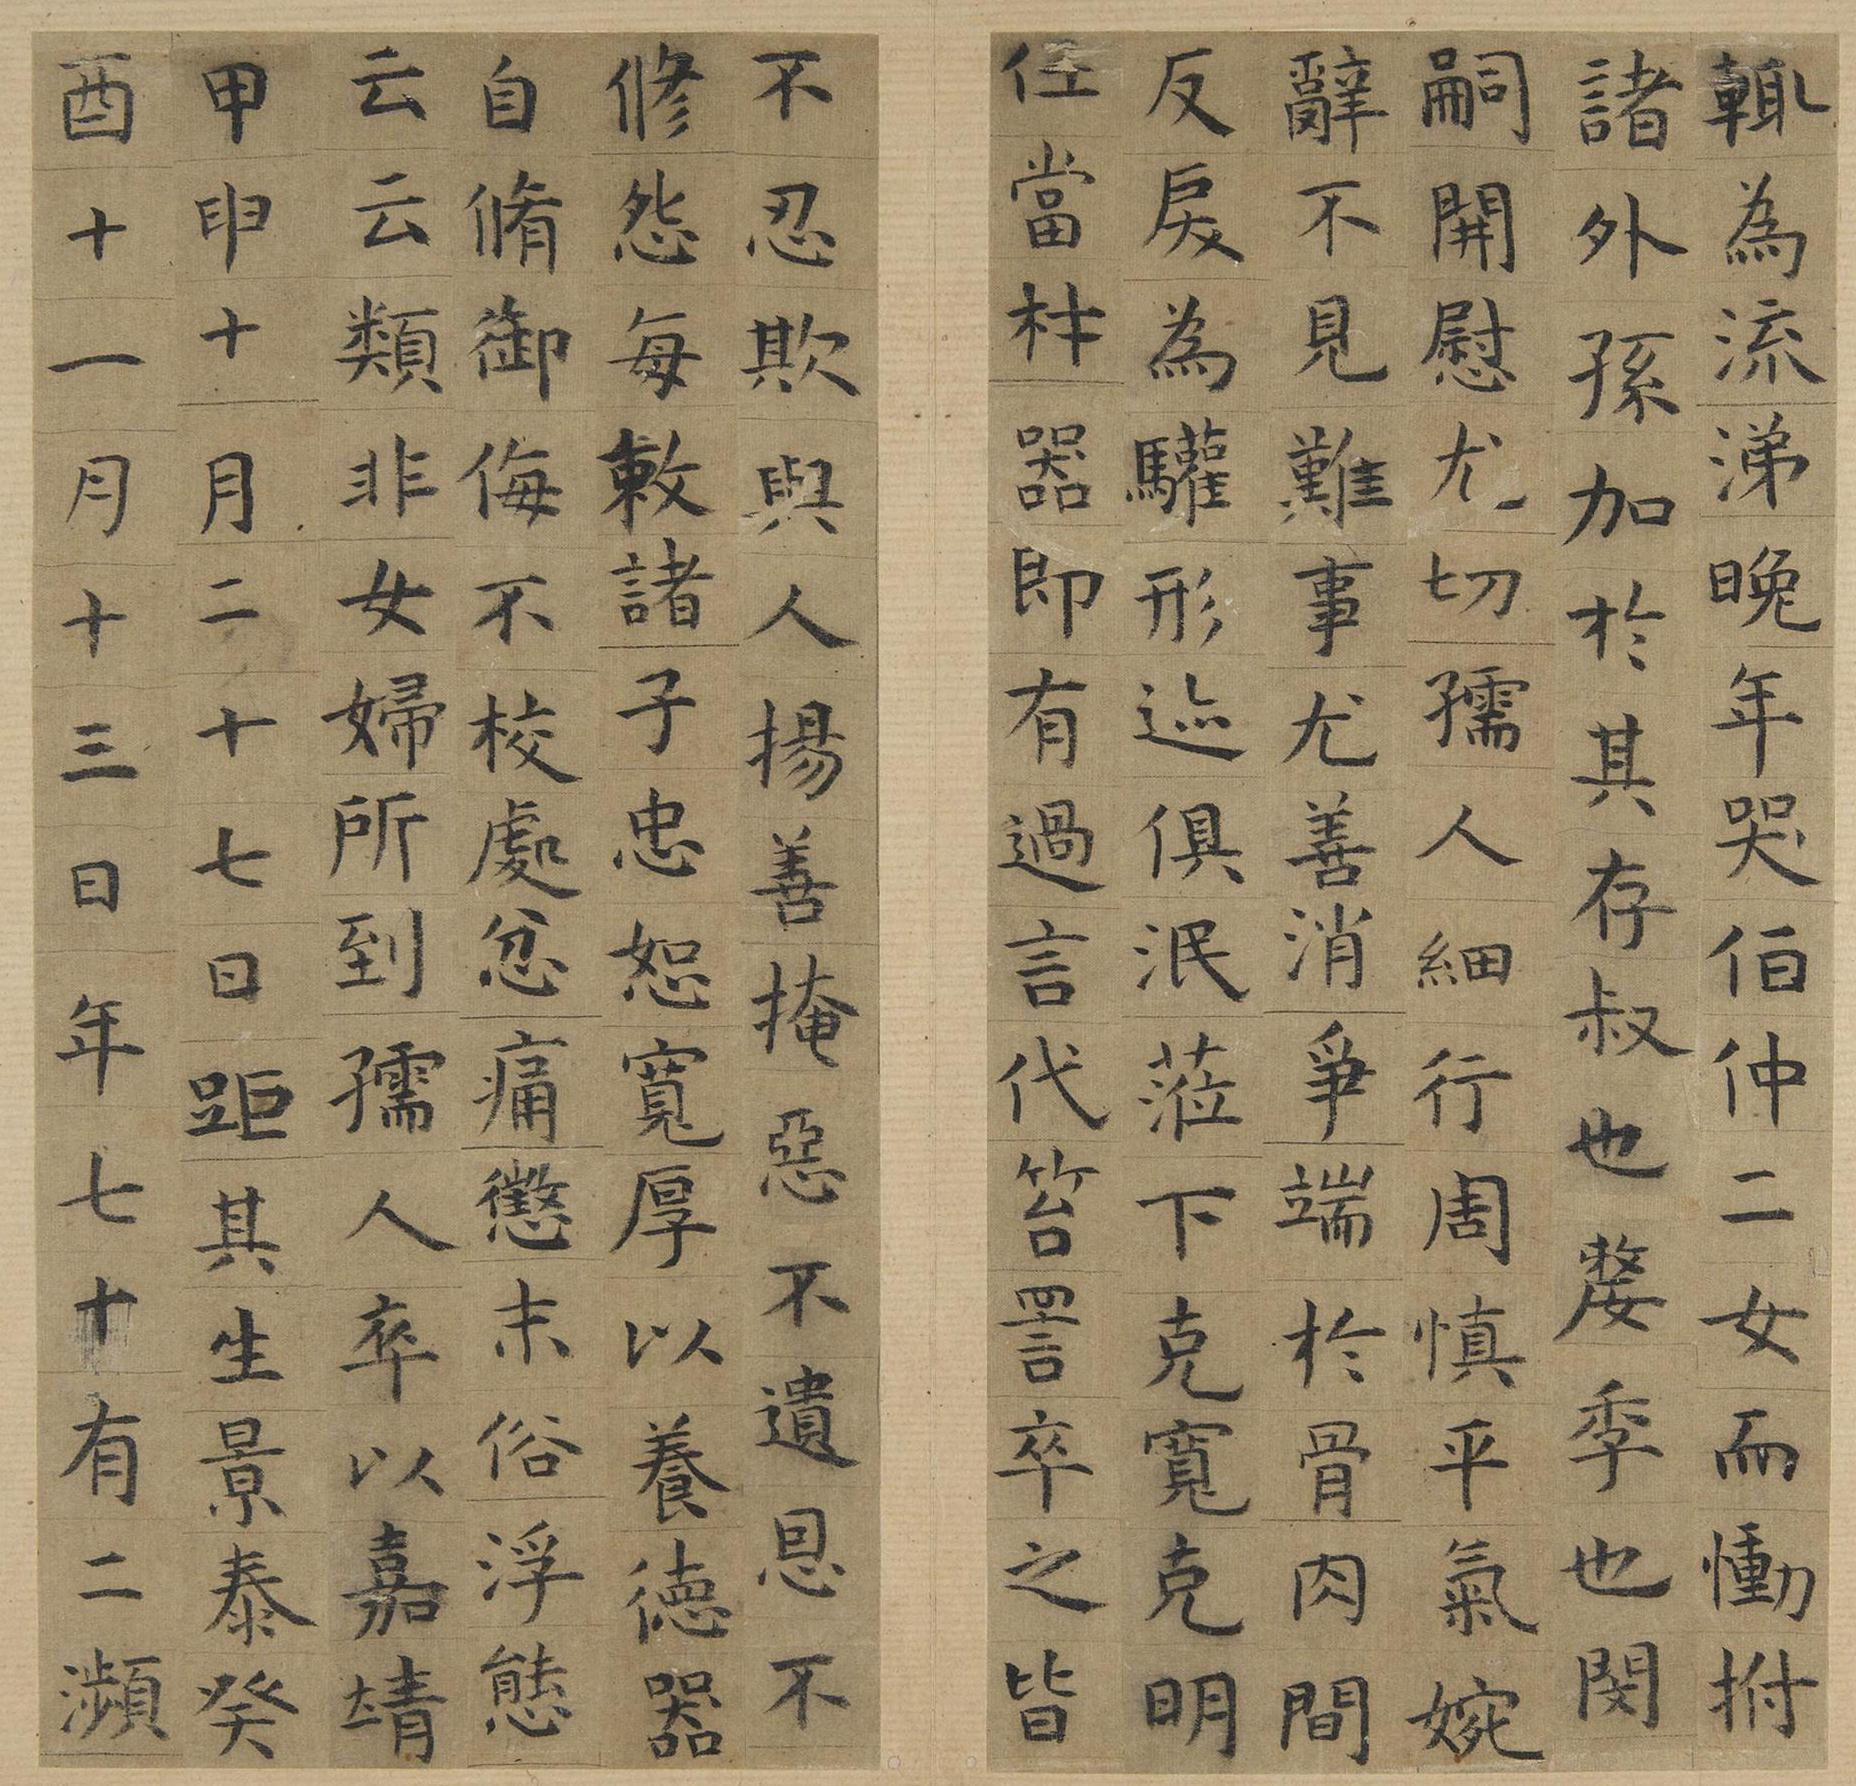 輒為流涕晚年哭伯仲二女而慟拊
諸外孫加於其存叔也嫠季也閔
嗣開慰尤切孺人細行周慎平氣婉
辭不見難事尤善消爭端於骨肉間
反戾為驩形迹俱泯蒞下克寬克明
任當材器即有過言代笞詈卒之皆
不忍欺與人揚善掩惡不遺恩不
修怨每敕諸子忠恕寬厚以養德器
自脩御侮不校處忿痛懲末俗浮態
云云類非女婦所到孺人卒以嘉靖
甲申十月二十七日距其生景泰癸
酉十一月十三日年七十有二瀕